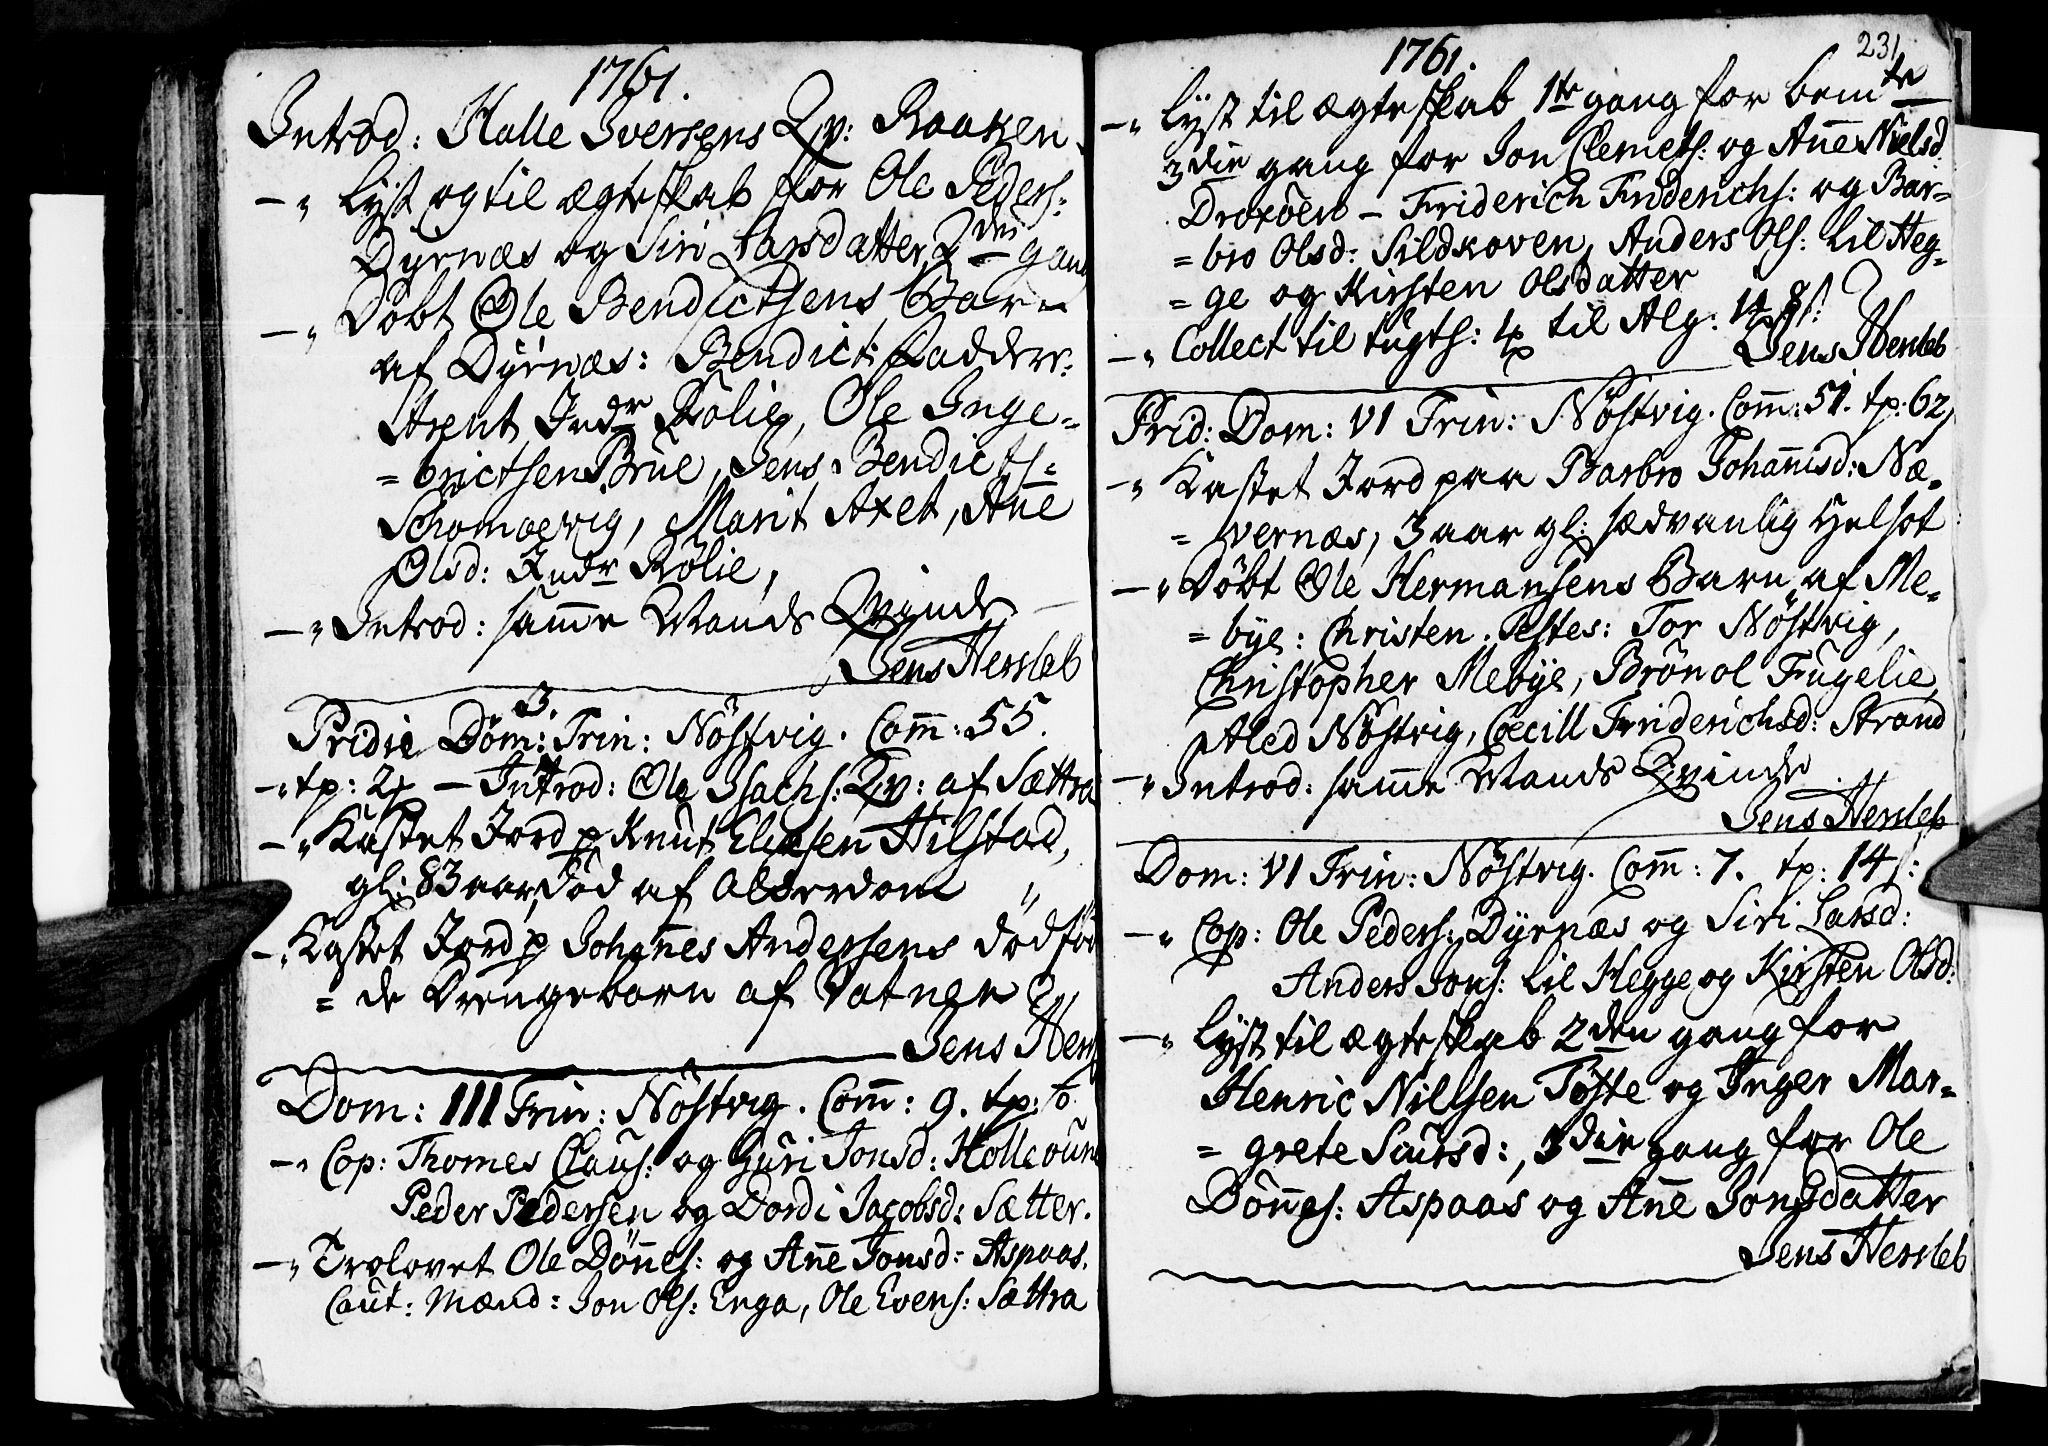 1761.
Introd: Halle Iversens Qv: Raaken
—„ lyst og til ægteskab for Ole Peders:
Dyrnæs og Siri Larsdatter 2den gang
—„ Döbt Ole Bendictsens Barn
af Dyrnæs: Bendict: Faddere:
Arent Indr Rölie, Ole Inge-
=brictsen Brue, Jens Bendicts:
Marit Axet, Ane
Olsd: Indr Rölie,
—„ Introd: samme Mands Qvinde
Jens Hersleb
Pridie Dom: 3. Trin: Nöstvig. Comm: 55.
—„ tp: — Introd: Ole Isachs: Qv: af Sættra
—„ Kastet Jord p Knut Elessen Hilstad,
gl: 83 aar, död af Alderdom „
—„ Kastet Jord p Johannes Andersens dödfød
=de Drengebarn af Vatner
Jens Hersl
Dom: III Trin: Nöstvig. Comm: 9. tp:
—„ Cop: Thomes Claus: og Guri Jonsd:
Peder Pedersen og Dordi Jacobsd: Sætter.
—„ Trolovet Ole Dönnes: og Anne Jonsd: Aspaas.
Caut: Mænd: Jon Ols: Enga, Ole Evens: Sættra
1761.
231
—„ lyst til ægteskab 1te gang for bemte
3die gang for Jon Clemets: og Anne Nielsd:
Droxöen — Friderich Friderichs: og Bar-
=bro Olsd: Sildkoven, Anders Ols: Lil Heg-
=ge og Kirsten Olsdatter
—„ Collect til tugts: til Alg:
Jens Hersleb
Prid: Dom: VI Trin: Nöstvig. Comm: 51. tp: 62,
—„ Kastet Jord paa Barbro Johannisd: Næ-
=vernæs, 3 aar gl: sædvanlig Helsot
—„ Döbt Ole Hermansens Barn af Me-
=bye: Christen. Testes: Tor Nöstvig,
Christopher Mebye, Brönol Fugelie,
Aled Nöstvig, Cecill Friderichsd: Strand
—„ Introd: samme Mands Qvinde
Jens Hersleb
Dom: VI Trin: Nöstvig. Comm: 7. tp: 14 s:
—„ Cop: Ole Peders: Dyrnæs og Siri Larsd:
Anders Jons: Lil Hegge og Kirsten Olsd:
—„ lyst til ægteskab 2den gang for
Henric Nillsen Töste og Inger Mar-
=grete Siursd:, 3die gang for Ole
Dönnes: Aspaas og Anne Jonsdatter
Jens Hersleb